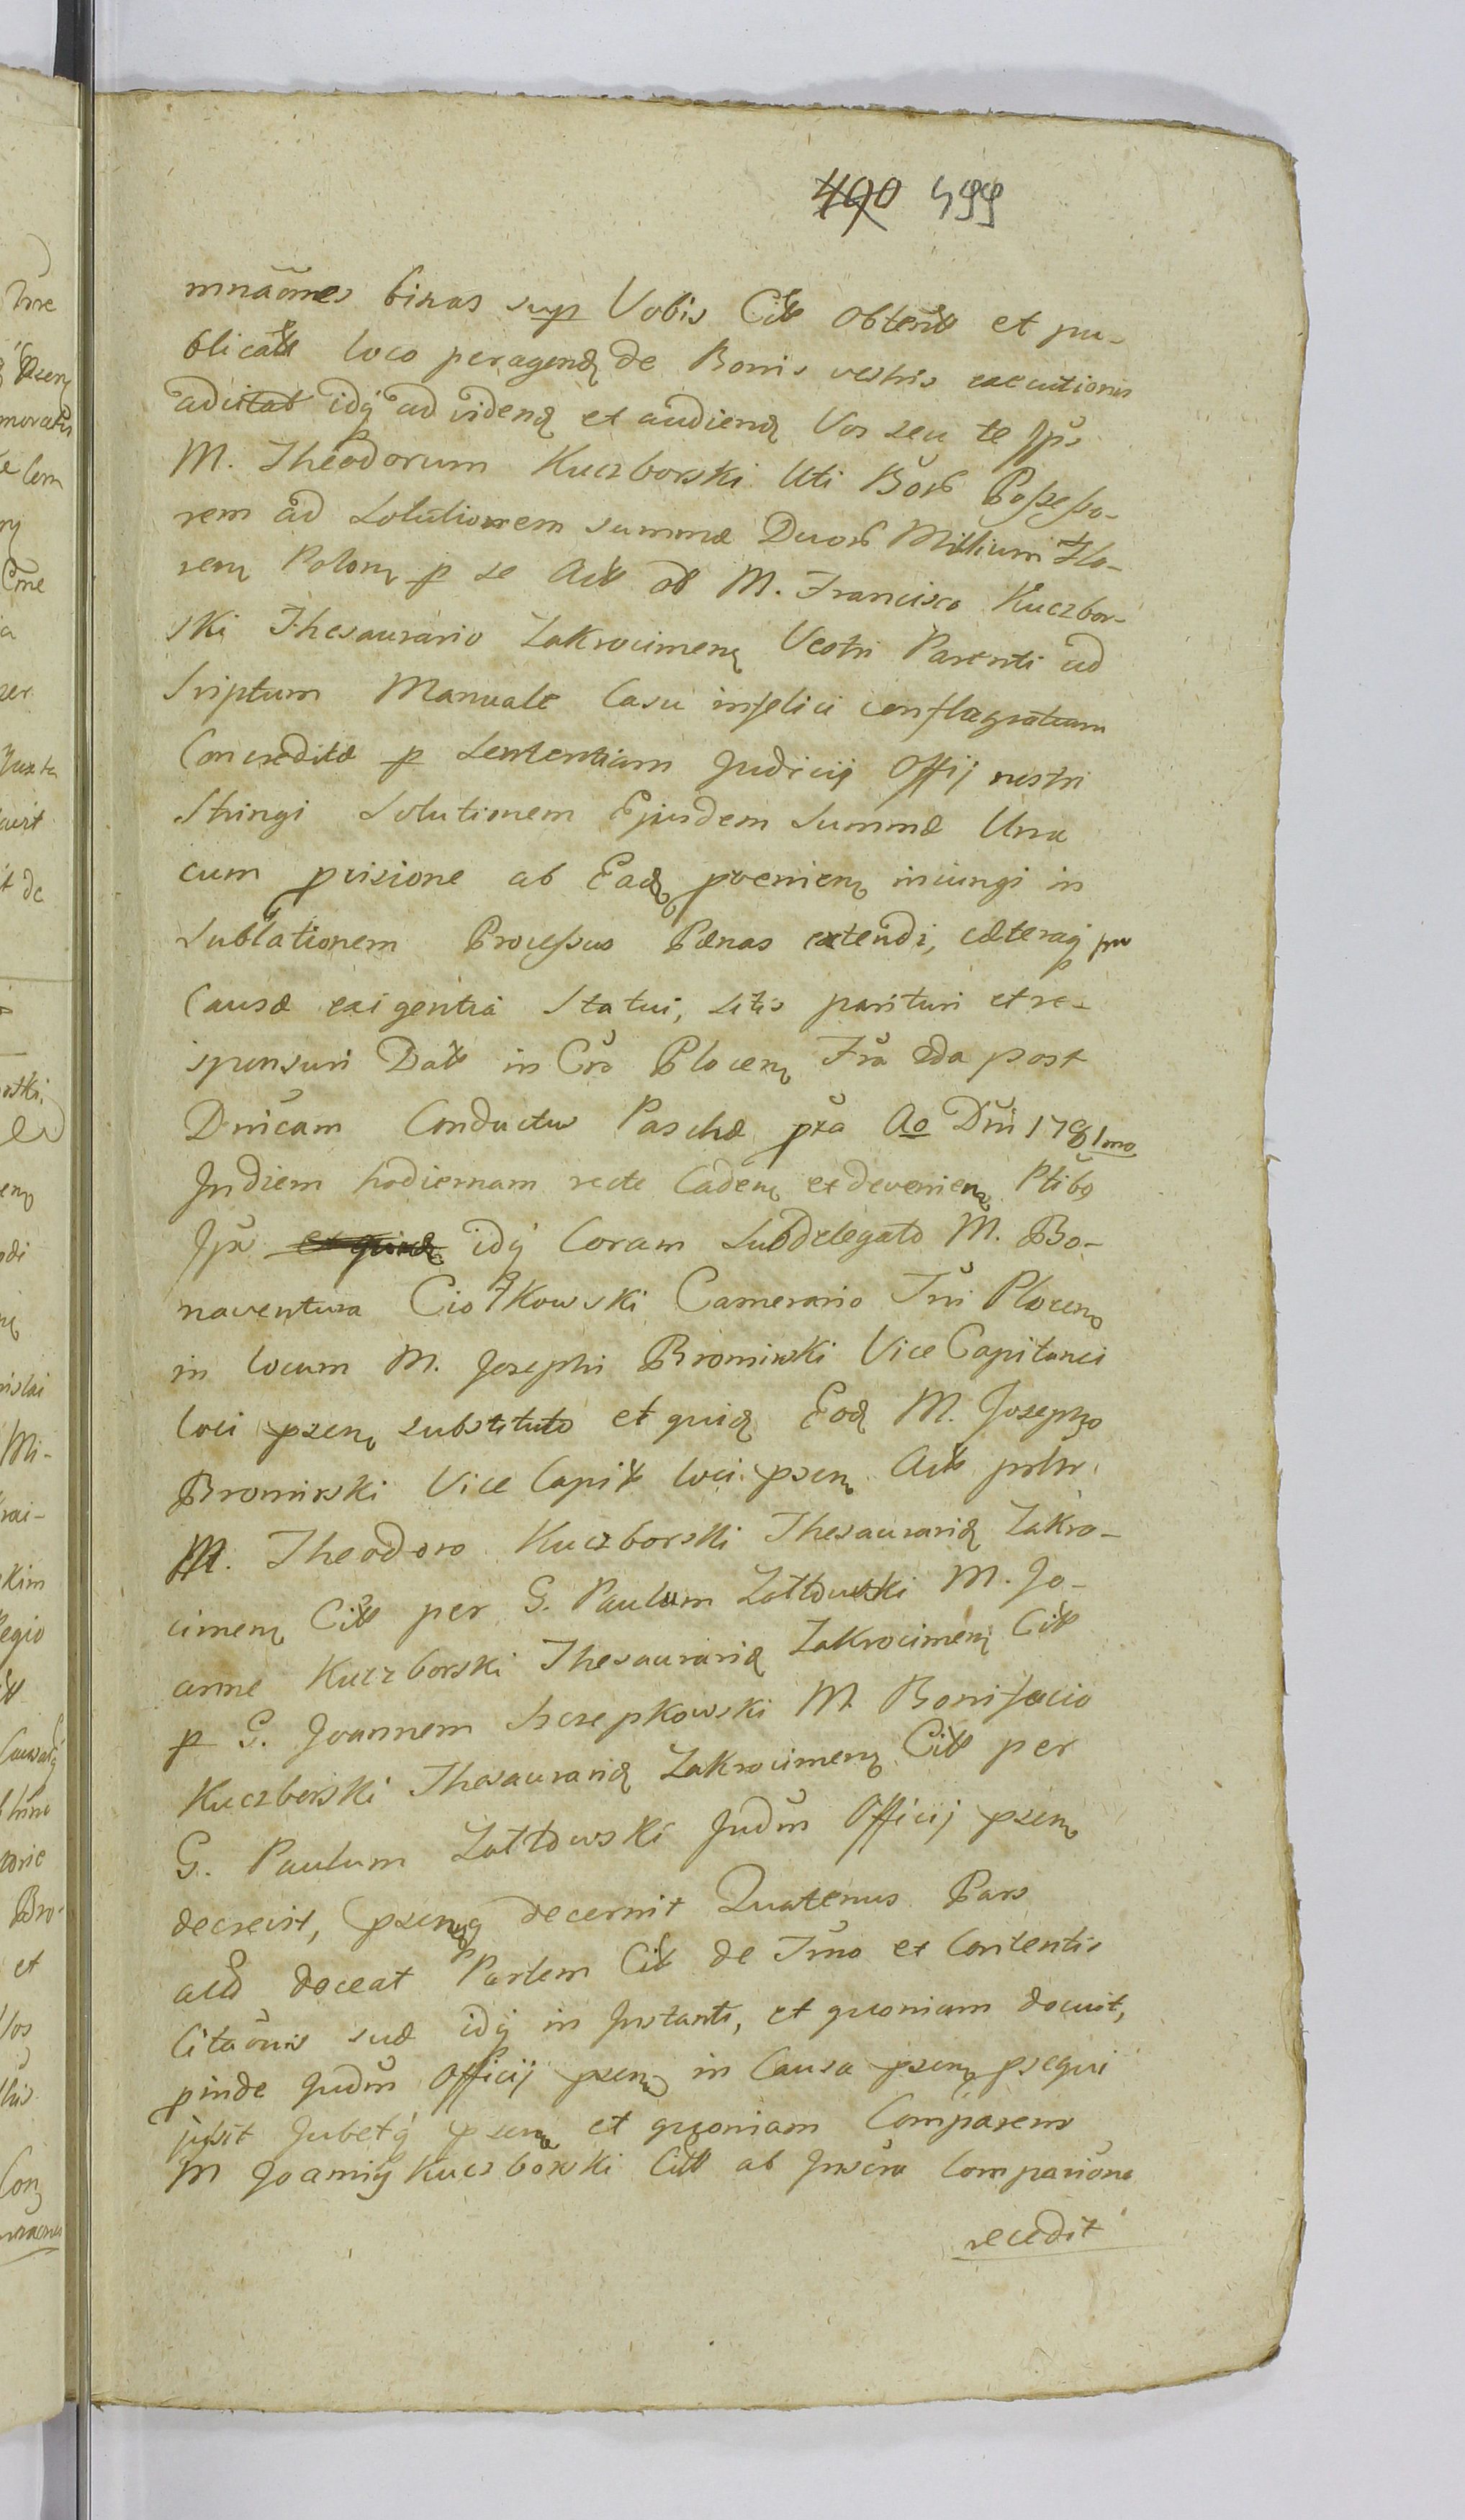 490 499
mnaones binas sup Vobis Citt obtent et pu-
blicatt loco peragend de Bonis vestris executionis
adcitat idq ad vidend et audiend Vos seu te Ips
M. Theodorum Kuczborski Uti Bor Possesso-
rem ad Solutionem summæ Duor Millium Flo-
ren Polon p se Act M. Francisco Kuczbor-
ski Thesaurario Zakrocimen Vestri Parenti ad
Scriptum Manuale Casu infelici conflagratum
Concreditæ p Sententiam Judicij Offij nostri
Stringi Solutionem Ejusdem Summæ Una
cum pvisione ab Ead pvenien iniungi in
Sublationem Processus Pænas extendi, cæteraq pro
Causæ exigentia Statui, Sitis parituri et re-
sponsuri Datt in Cro Plocen Fra 2da post
Dnicam Conductus Paschæ pxa Ao Dni 1781mo
In diem hodiernam recte Caden et devenien Ptibs
Ips idq Coram Subdelegato M. Bo-
naventura Ciołkowski Camerario Trri Plocen
in locum M. Josephi Bromirski Vice Capitanei
loci psen substituto et quid Eod M. Josepho
Bromirski Vice Capit loci psen Act
M. Theodoro Kuczborski Thesaurarid Zakro-
cimen Citt per G. Paulum Zattowski M. Jo-
anne Kuczborski Thesaurarid Zakrocimen Citt
p G. Joannem Szczepkowski M Bonifacio
Kuczborski Thesaurarid Zakrocimen Citt per
G. Paulum Zattowski Judm Officij psen
decrevit, psenq decernit Quatenus Pars
doceat Partem Citt de Trmo et Contentis
Citaonis suæ idq in Instanti, et quoniam docuit,
pinde Judm Officij psen in Causa psen psequi
jussit Jubetq psen et quoniam Comparens
M Joannis Kuczborski Citt ab Inscra Comparione
recedit